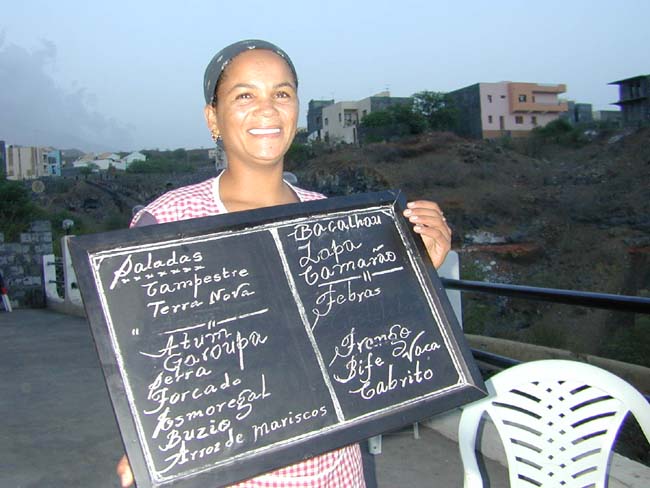 Saladas
Campestre
Terra Nova
" = "
Atum
Garoupa
Serra
Forcado
Esmoregal
Buzio
Arroz de Mariscos
Bacalhau
Lapa
Camarão
" = "
Febras
Frango
Bife Vaca
Cabrito